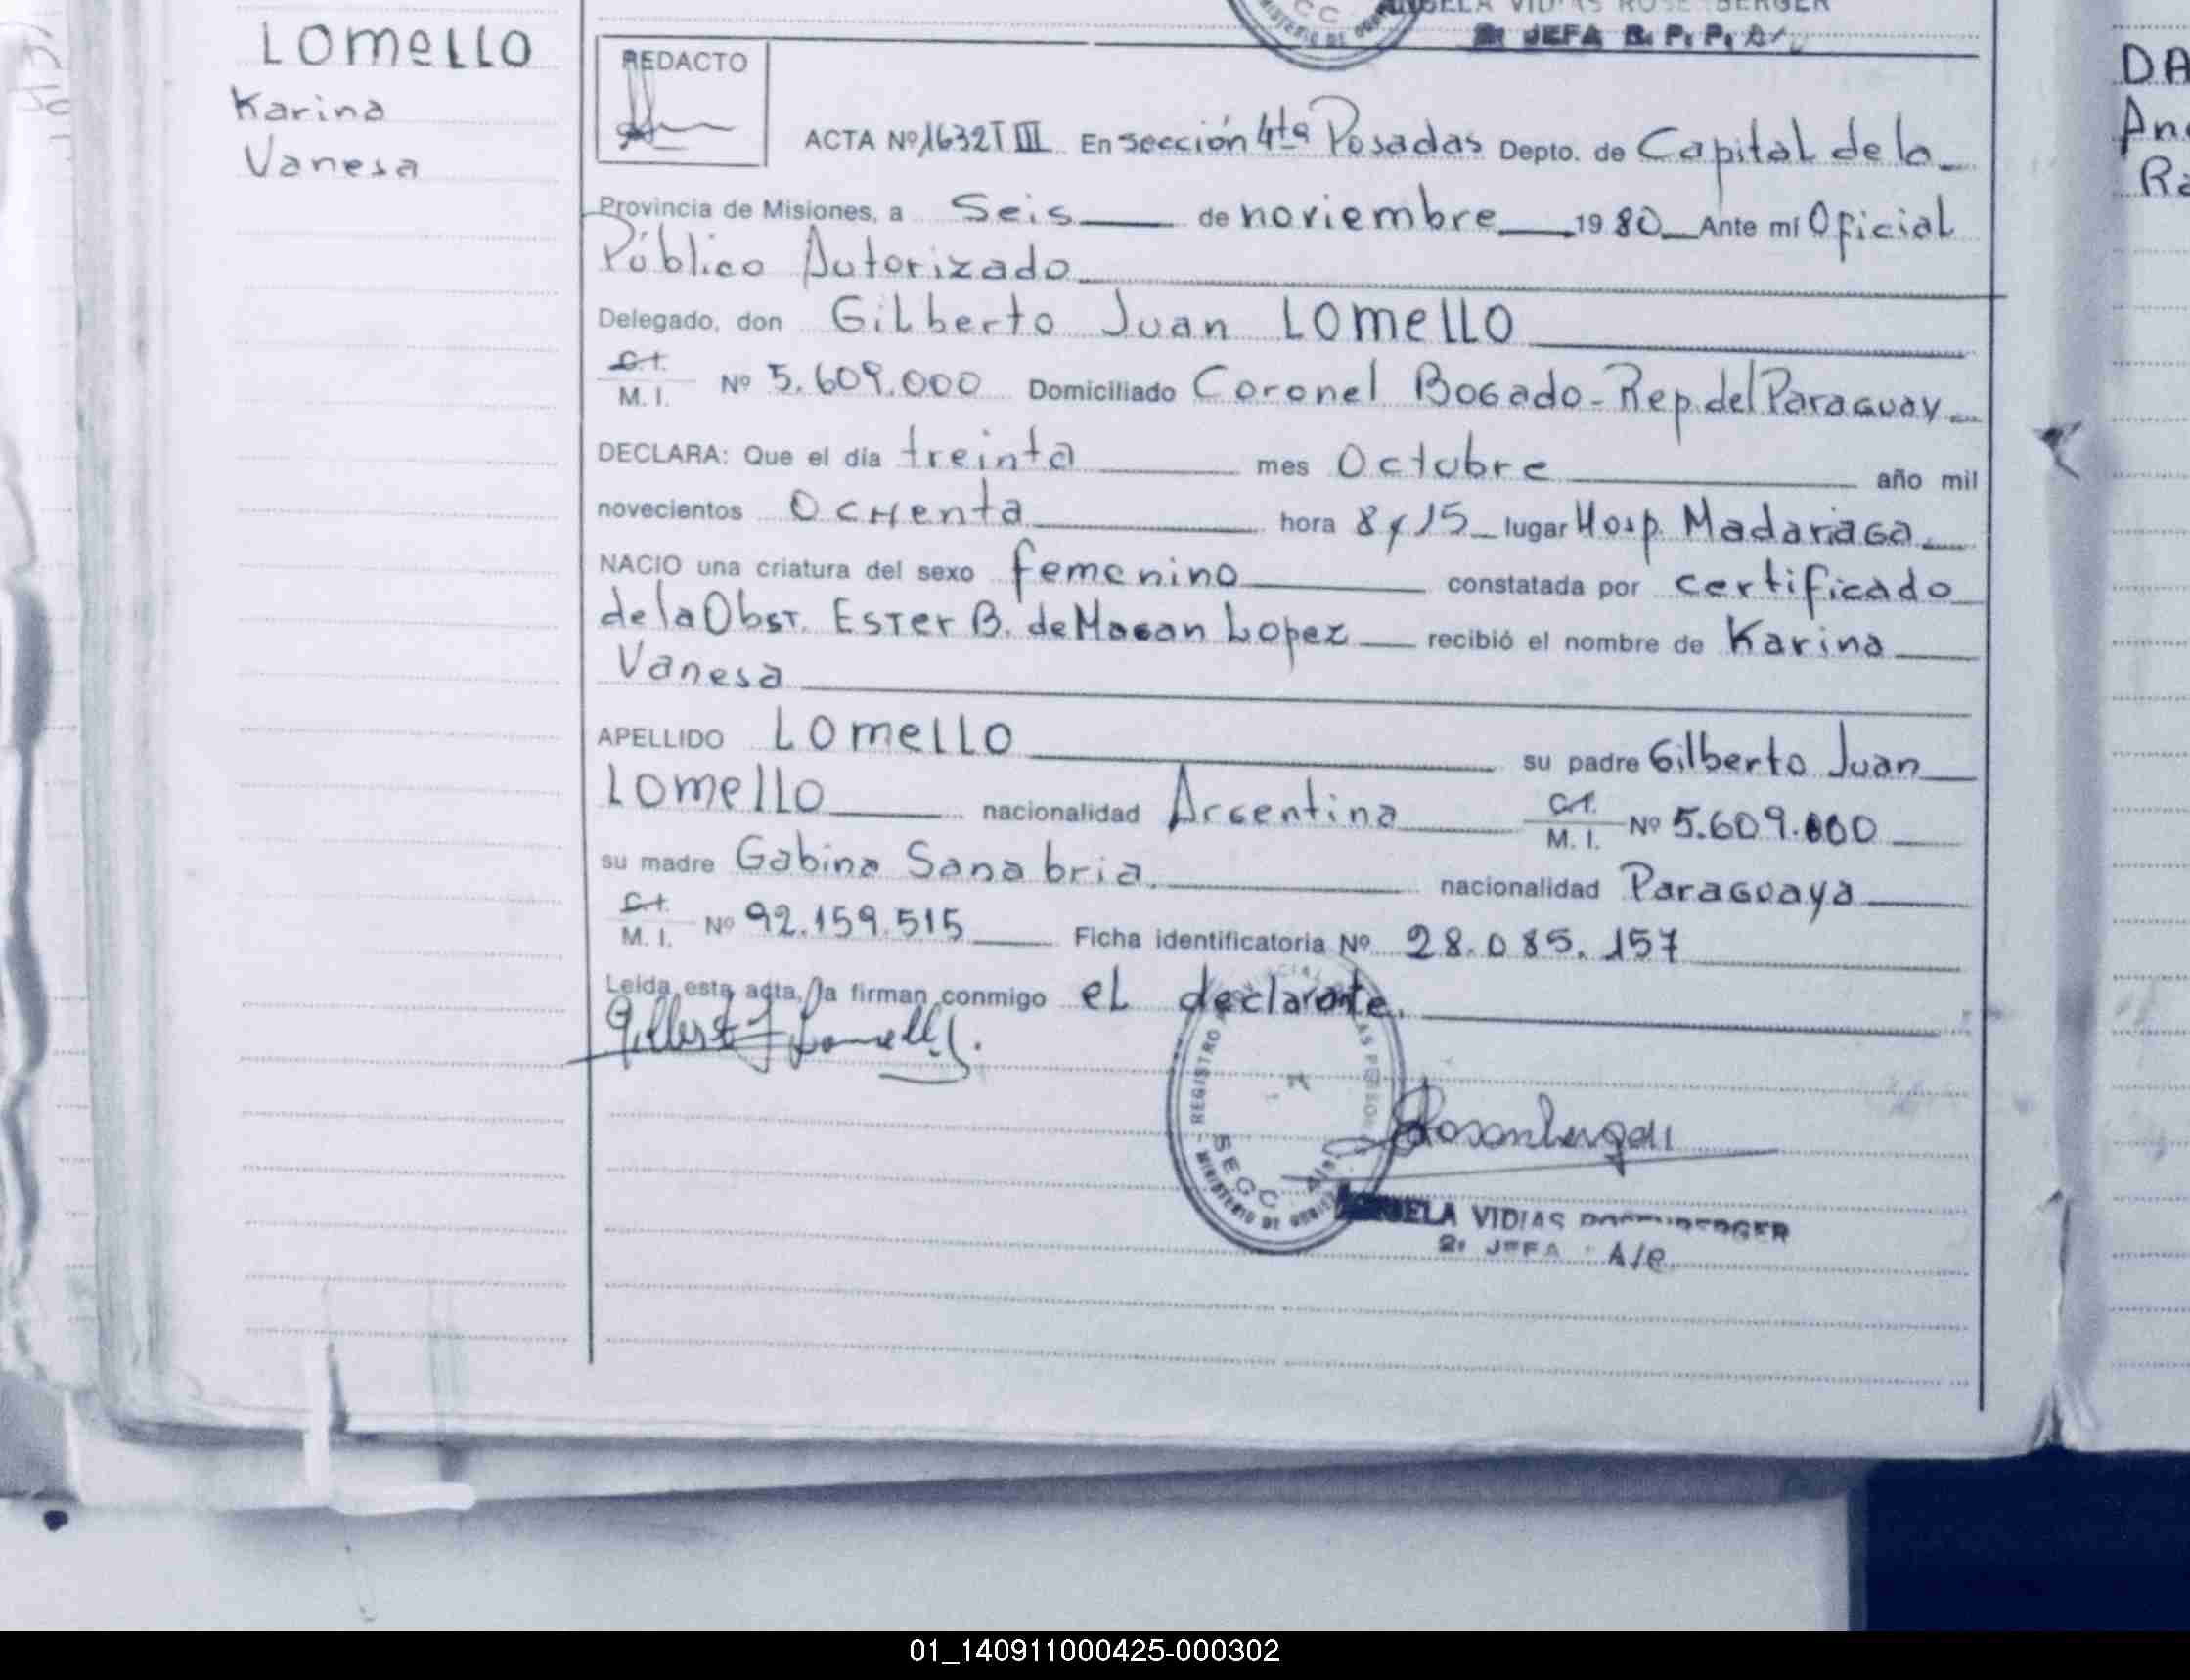 LOMELLO
Karina
Vanesa
VIDIAS ROSENBERGER
2ª JEFA B. P. P. A/
REDACTO
ACTA Nº 1632 T III En Sección 4ta Posadas Depto. de Capital de la
Provincia de Misiones, a Seis de noviembre 1980 Ante mí Oficial
Público Autorizado
Delegado, don Gilberto Juan LOMELLO
C.I. M. I. Nº 5.609.000 Domiciliado Coronel Bogado - Rep. del Paraguay
DECLARA: Que el día treinta mes Octubre año mil
novecientos OCHenta hora 8 y 15 lugar Hosp. Madariaga
NACIO una criatura del sexo femenino constatada por certificado
de la Obst. Ester B. de Lopez recibió el nombre de Karina
Vanesa
APELLIDO LOMELLO su padre Gilberto Juan
LOMELLO nacionalidad Argentina C.I. M. I. Nº 5.609.000
su madre Gabina Sanabria. nacionalidad Paraguaya
C.I. M. I. Nº 92.159.515 Ficha identificatoria Nº 28.085.157
Leída esta acta, la firman conmigo el declarante.
REGISTRO PROVINCIAL DE LAS PERSONAS
SEGC
MINISTERIO DE GOBIERNO
VIDIAS ROSENBERGER
2ª JEFA A/C
DA
An
Ra
01_140911000425-000302